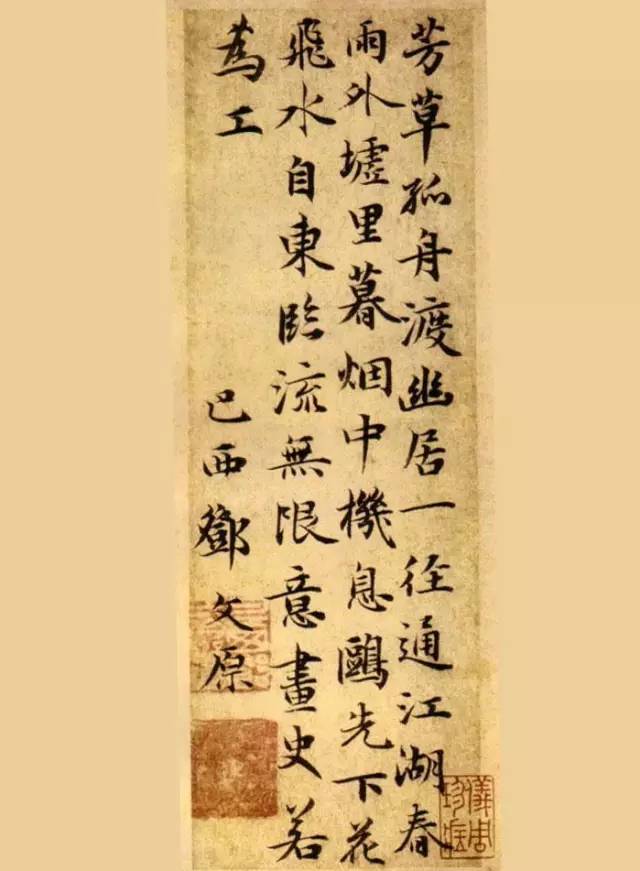 芳草孤舟渡幽居一徑通江湖春
雨外墟里暮烟中機息鷗先下花
飛水自東臨流無限意畫史若
為工
巴西鄧文原